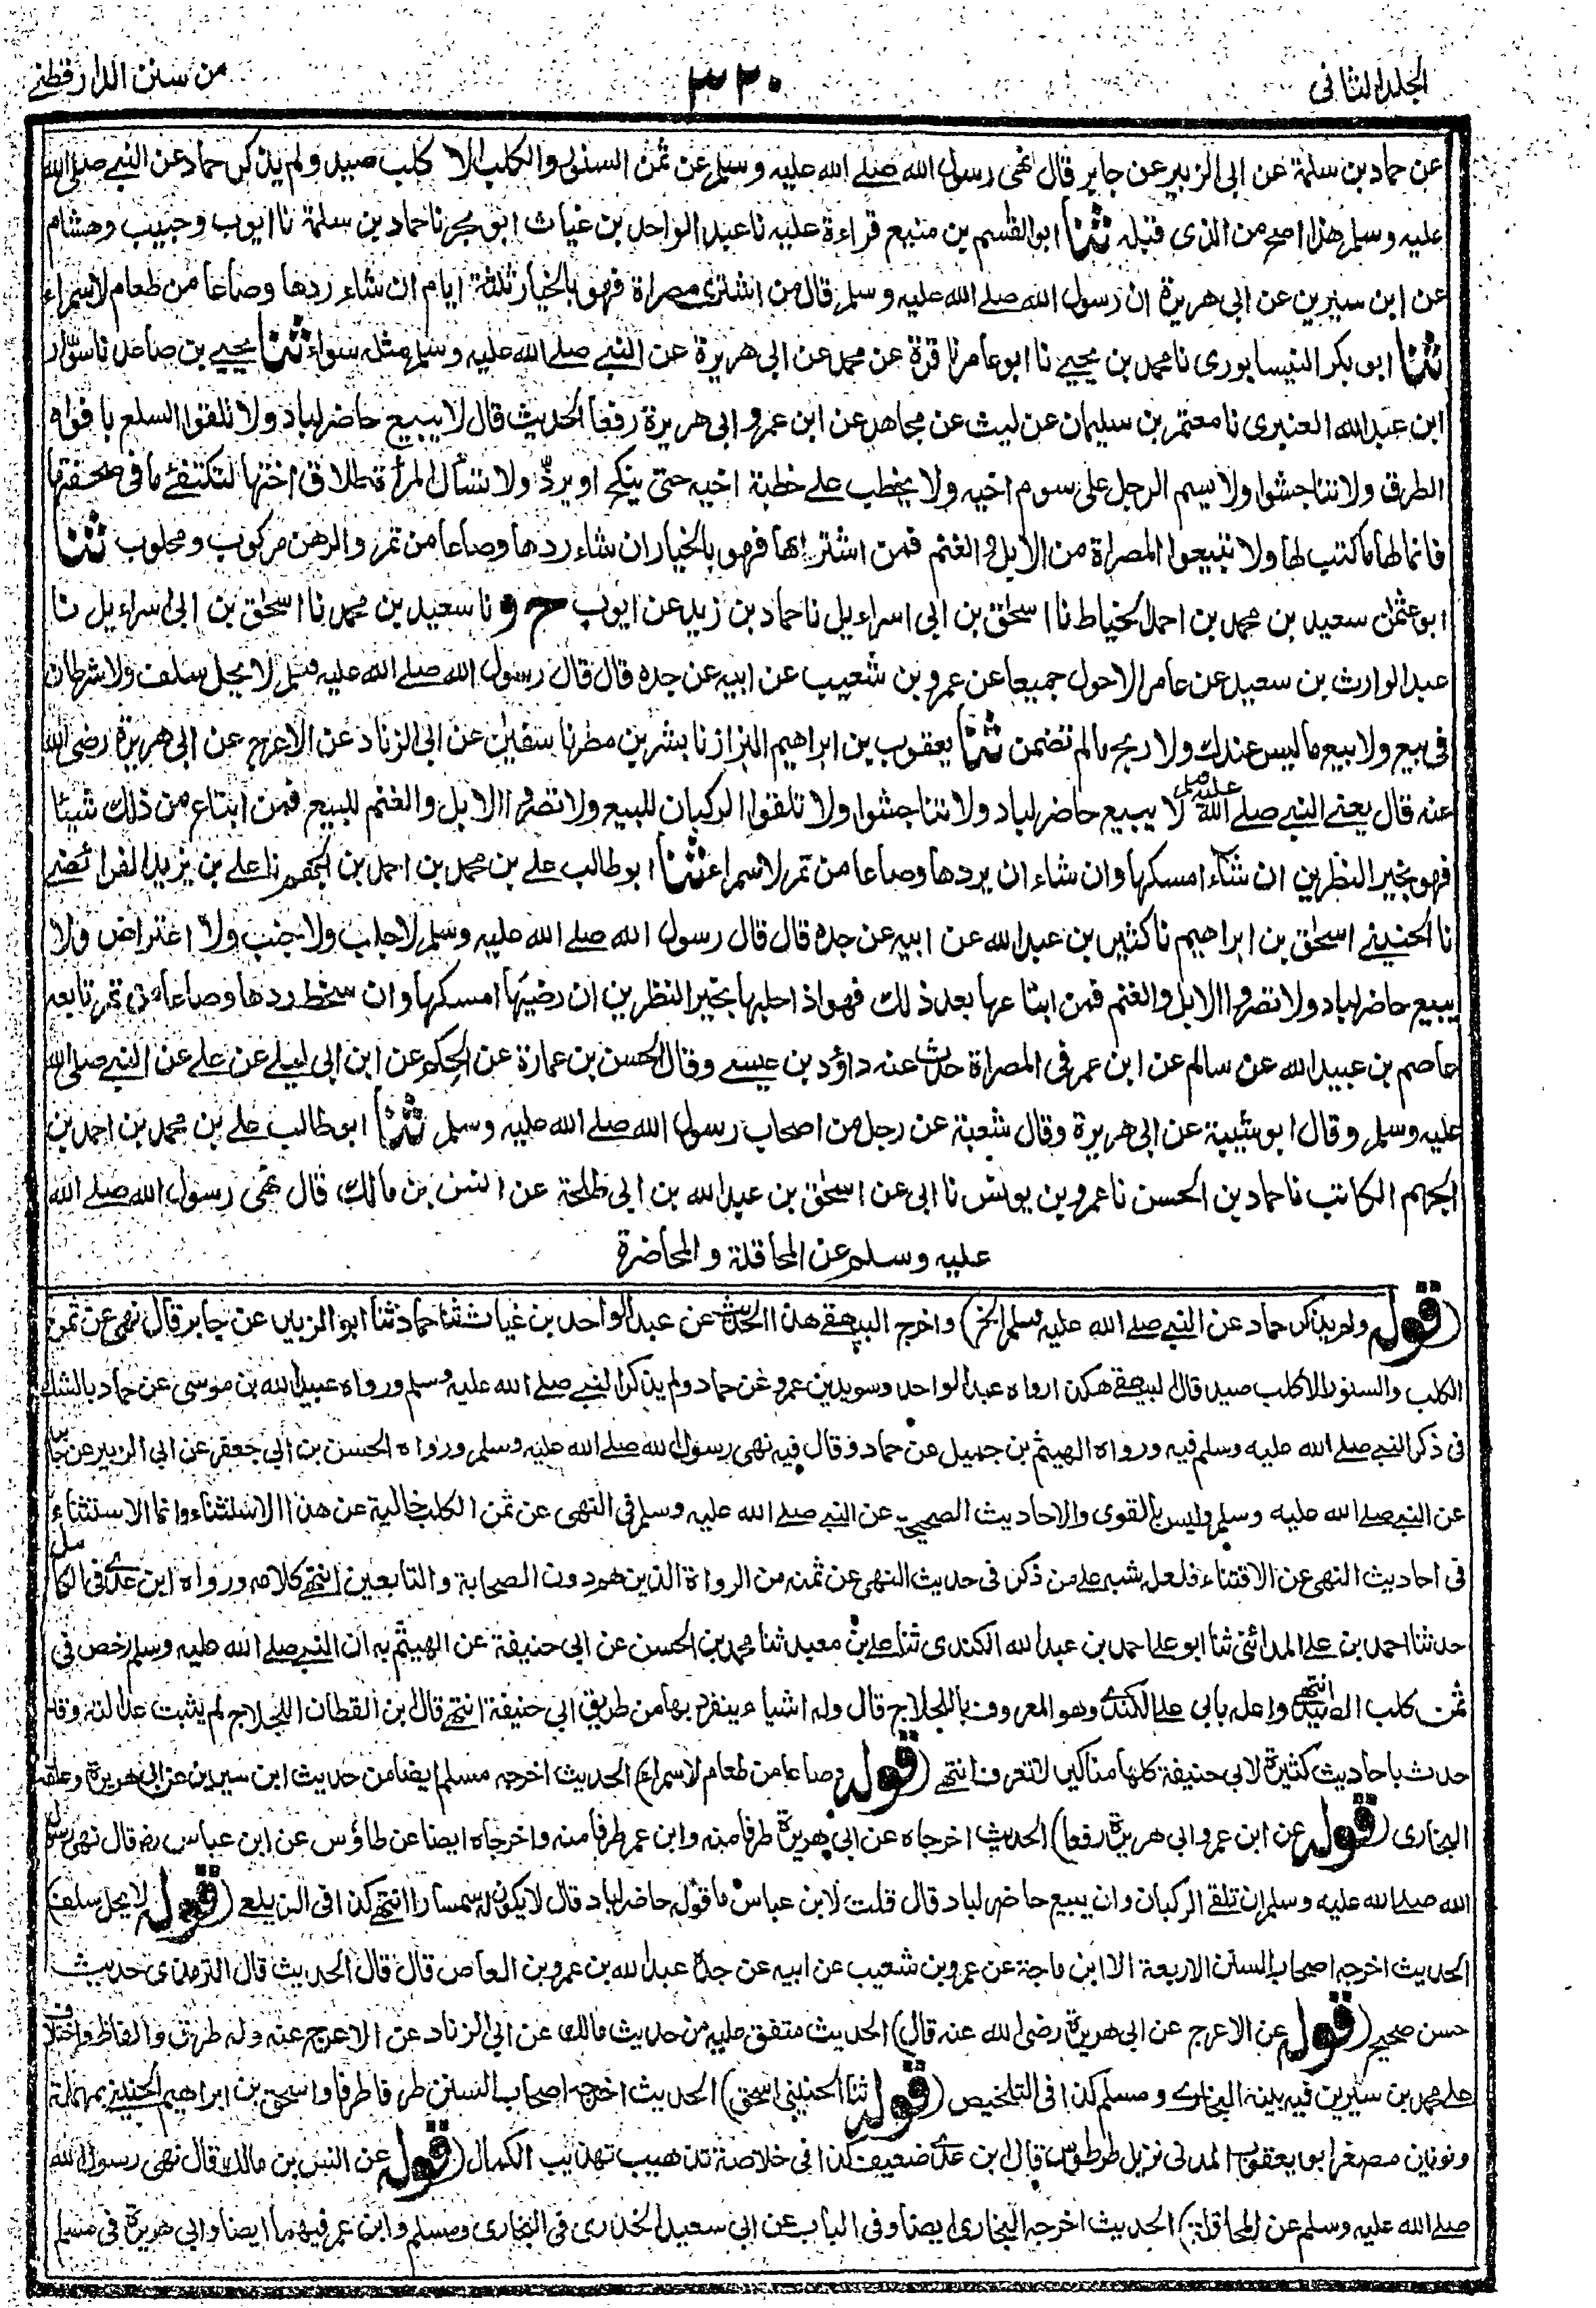 الجلد الثاني
٣٢٠
من سنن الدارقطنے
عن حماد بن سلمة عن ابی الزبير عن جابر قال نهى رسول الله صلے الله عليه وسلم عن ثمن السنور والكلب الا كلب صيد ولم يذكر حماد عن النبے صلے الله
عليه وسلم هذا اصح من الذی قبله ثنا ابو القسم بن منيع قراءة عليه نا عبد الواحد بن غياث ابو بحر نا حماد بن سلمة نا ايوب وحبيب وهشام
عن ابن سيرين عن ابی هريرة ان رسول الله صلے الله عليه وسلم قال من اشتری مصراة فهو بالخيار ثلثة ايام ان شاء ردها وصاعا من طعام لاسمراء
ثنا ابو بكر النيسابوری نا محمد بن يحيے نا ابو عامر نا قرة عن محمد عن ابی هريرة عن النبے صلے الله عليه وسلم مثله سواء ثنا يحيے بن صاعد نا سوّار
ابن عبد الله العنبری نا معتمر بن سليمان عن ليث عن مجاهد عن ابن عمر و ابی هريرة رفعا الحديث قال لا يبيع حاضر لباد ولا تلقوا السلع بافواه
الطرق ولا تناجشوا ولا يسم الرجل على سوم اخيه ولا يخطب علے خطبة اخيه حتى ينكح او يردّ ولا تسأل المرأة طلاق اختها لتكتفئ ما فی صحفتها
فانما لها ما كتب لها ولا تبيعوا المصراة من الابل و الغنم فمن اشتراها فهو بالخيار ان شاء ردها وصاعا من تمر والرهن مركوب ومحلوب ثنا
ابو عثمٰن سعيد بن محمد بن احمد الحناط نا اسحٰق بن ابی اسراءيل نا حماد بن زيد عن ايوب ح و نا سعيد بن محمد نا اسحٰق بن ابی اسراءيل نا
عبد الوارث بن سعيد عن عامر الاحول جميعا عن عمرو بن شعيب عن ابيه عن جده قال قال رسول الله صلے الله عليه وسلم لا يحل سلف ولا شرطان
فی بيع ولا بيع ما ليس عندك ولا ربح مالم تضمن ثنا يعقوب بن ابراهيم البزاز نا بشر بن مطر نا سفين عن ابی الزناد عن الاعرج عن ابی هريرة رضی الله
عنه قال يعنے النبے صلے الله عليه وسلم لا يبيع حاضر لباد ولا تناجشوا ولا تلقوا الركبان للبيع ولا تصروا الابل والغنم للبيع فمن ابتاع من ذلك شيئا
فهو بخير النظرين ان شاء امسكها وان شاء ان يردها وصاعا من تمر لاسمراء ثنا ابو طالب علے بن محمد بن احمد بن الجهم نا علے بن يزيد الفرائضے
نا الحنينے اسحٰق بن ابراهيم نا كثير بن عبد الله عن ابيه عن جده قال قال رسول الله صلے الله عليه وسلم لا جلب ولا جنب ولا اعتراض ولا
يبيع حاضر لباد ولا تصروا الابل والغنم فمن ابتاعها بعد ذلك فهو اذا حلبها بخير النظرين ان رضيها امسكها وان سخط ردها وصاعا من تمر تابعه
عاصم بن عبيد الله عن سالم عن ابن عمر فی المصراة حدث عنه داؤد بن عيسے وقال الحسن بن عمارة عن الحكم عن ابن ابی ليلے عن علے عن النبے صلے الله
عليه وسلم وقال ابو شيبة عن ابی هريرة وقال شعبة عن رجل من اصحاب رسول الله صلے الله عليه وسلم ثنا ابو طالب علے بن محمد بن احمد بن
الجهم الكاتب نا حماد بن الحسن نا عمرو بن يونس نا ابی عن اسحٰق بن عبد الله بن ابی طلحة عن انس بن مالك قال نهى رسول الله صلے الله
عليه وسلم عن المحاقلة و المخاضرة
(قوله ولم يذكر حماد عن النبے صلے الله عليه وسلم الخ) واخرج البيهقے هذا الحديث عن عبد الواحد بن غياث ثنا حماد ثنا ابو الزبير عن جابر قال نهى عن ثمن
الكلب والسنور الا كلب صيد قال البيهقے هكذا رواه عبد الواحد وسويد بن عمرو عن حماد ولم يذكر النبے صلے الله عليه وسلم ورواه عبيد الله بن موسى عن حماد بالشك
فی ذكر النبے صلے الله عليه وسلم فيه ورواه الهيثم بن جميل عن حماد وقال فيه نهى رسول الله صلے الله عليه وسلم ورواه الحسن بن ابی جعفر عن ابی الزبير عن جابر
عن النبے صلے الله عليه وسلم وليس بالقوی والاحاديث الصحيحة عن النبے صلے الله عليه وسلم فی النهى عن ثمن الكلب خالية عن هذا الاستثناء وانما الاستثناء
فی احاديث النهى عن الاقتناء فلعل شبه علے من ذكر فی حديث النهى عن ثمنه من الرواة الذين هم دون الصحابة والتابعين انتهے كلامه ورواه ابن عدے فی الكامل
حدثنا احمد بن علے المدائنی ثنا ابو علے احمد بن عبد الله الكندی ثنا علے بن معبد ثنا محمد بن الحسن عن ابی حنيفة عن الهيثم به ان النبے صلے الله عليه وسلم رخص فی
ثمن كلب الصيد انتهے واعله بابی علے الكندے وهو المعروف باللجلاج قال وله اشياء ينفرد بها من طريق ابی حنيفة انتهے قال بن القطان اللجلاج لم يثبت عدالته وقد
حدث باحاديث كثيرة لابی حنيفة كلها مناكير لا تعرف انتهے (قوله وصاعا من طعام لا سمراء) الحديث اخرجه مسلم ايضا من حديث ابن سيرين عن ابی هريرة وعلقه
البخاری (قوله عن ابن عمر و ابی هريرة رفعا) الحديث اخرجاه عن ابی هريرة طرفا منه وابن عمر طرفا منه واخرجاه ايضا عن طاؤس عن ابن عباس رض قال نهى رسول
الله صلے الله عليه وسلم ان تلقے الركبان وان يبيع حاضر لباد قال قلت لابن عباس ما قوله حاضر لباد قال لا يكون له سمسارا انتهے كذا فی الزيلعے (قوله لا يحل سلف)
الحديث اخرجه اصحاب السنن الاربعة الا ابن ماجة عن عمرو بن شعيب عن ابيه عن جده عبد الله بن عمرو بن العاص قال قال الحديث قال الترمذی حديث
حسن صحيح (قوله عن الاعرج عن ابی هريرة رضی الله عنه قال) الحديث متفق عليه من حديث مالك عن ابی الزناد عن الاعرج عنه وله طرق والفاظ واختلاف
علے محمد بن سيرين فيه بينه البخارے و مسلم كذا فی التلخيص (قوله ثنا الحنينی اسحق) الحديث اخرجه اصحاب السنن طرفا طرفا واسحق بن ابراهيم الحنينے بمهملة
ونونين مصغر ابو يعقوب المدنی نزيل طرطوس قال ابن عدے ضعيف كذا فی خلاصة تذهيب تهذيب الكمال (قوله عن انس بن مالك قال نهى رسول الله
صلے الله عليه وسلم عن المحاقلة) الحديث اخرجه البخاری ايضا وفی الباب عن ابی سعيد الخدری فی البخاری ومسلم وابن عمر فيهما ايضا وابی هريرة فی مسلم